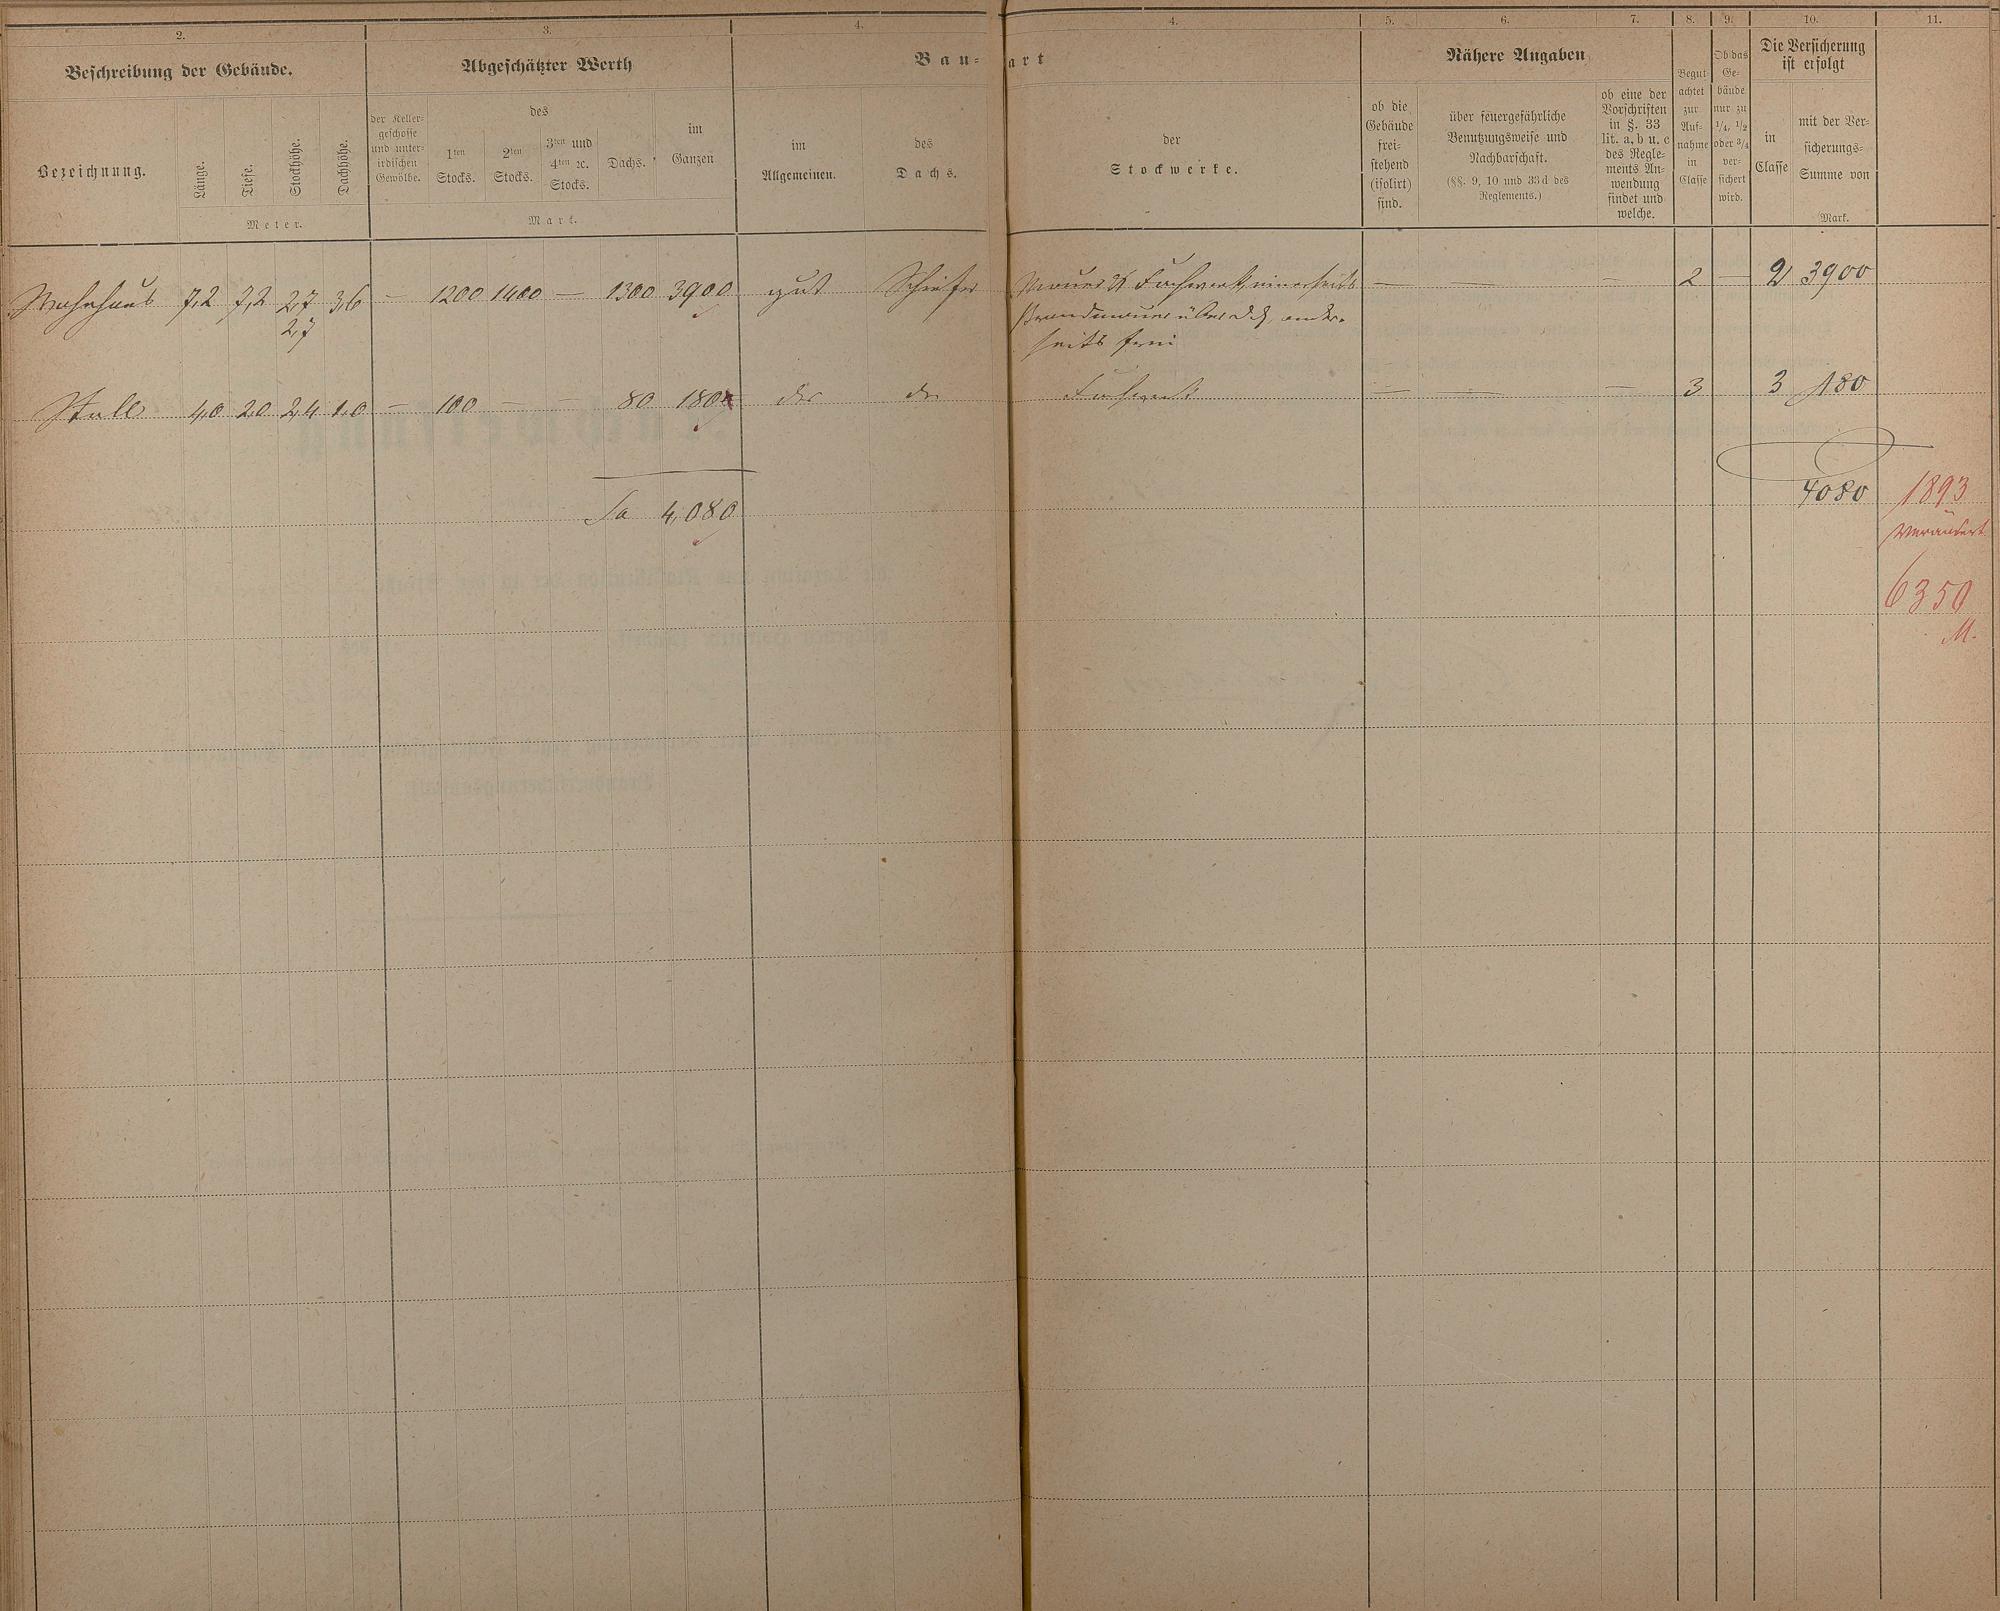 2.
3.
4.
4.
5.
6.
7.
8.
9.
10.
11.
Beschreibung der Gebäude.
Abgeschätzter Werth
Bau-
art
Nähere Angaben
Die Versicherung
ist erfolgt
Bezeichnung.
Länge.
Tiefe.
Stockhöhe.
Dachhöhe.
Meter.
der Keller-
geschosse
und unter-
irdischen
Gewölbe.
des
1ten
Stocks.
2ten
Stocks.
3ten und
4ten ꝛc.
Stocks.
Dachs.
im
Ganzen
Mark.
im
Allgemeinen.
des
Dachs.
der
Stockwerke.
ob die
Gebäude
frei-
stehend
(isolirt)
sind.
über feuergefährliche
Benutzungsweise und
Nachbarschaft.
(§§. 9, 10 und 33d des
Reglements.)
ob eine der
Vorschriften
in §. 33
lit. a, b u. c
des Regle-
ments An-
wendung
findet und
welche.
Begut
achtet
zur
Auf-
nahme
in
Classe
Ob das
Ge-
bäude
nur zu
1/4, 1/2
oder 3/4
ver-
sichert
wird.
in
Classe
mit der Ver-
sicherungs-
Summe von
Mark.
Wohnhaus 7,2 7,2 2,7 3,6 — 1200 1400 — 1300 3900 gut Schiefer Mauer & Fachwerk, einerseits — — — 2 — 2 3900
2,7
Brandmauer über Dch, ander-
seits frei
Stall 4,0 2,0 2,4 1,0 — 100 — — 80 180 do do Fachwerk — — — 3 3 180
Sa 4,080
4080
1893
Verändert
6350
M.